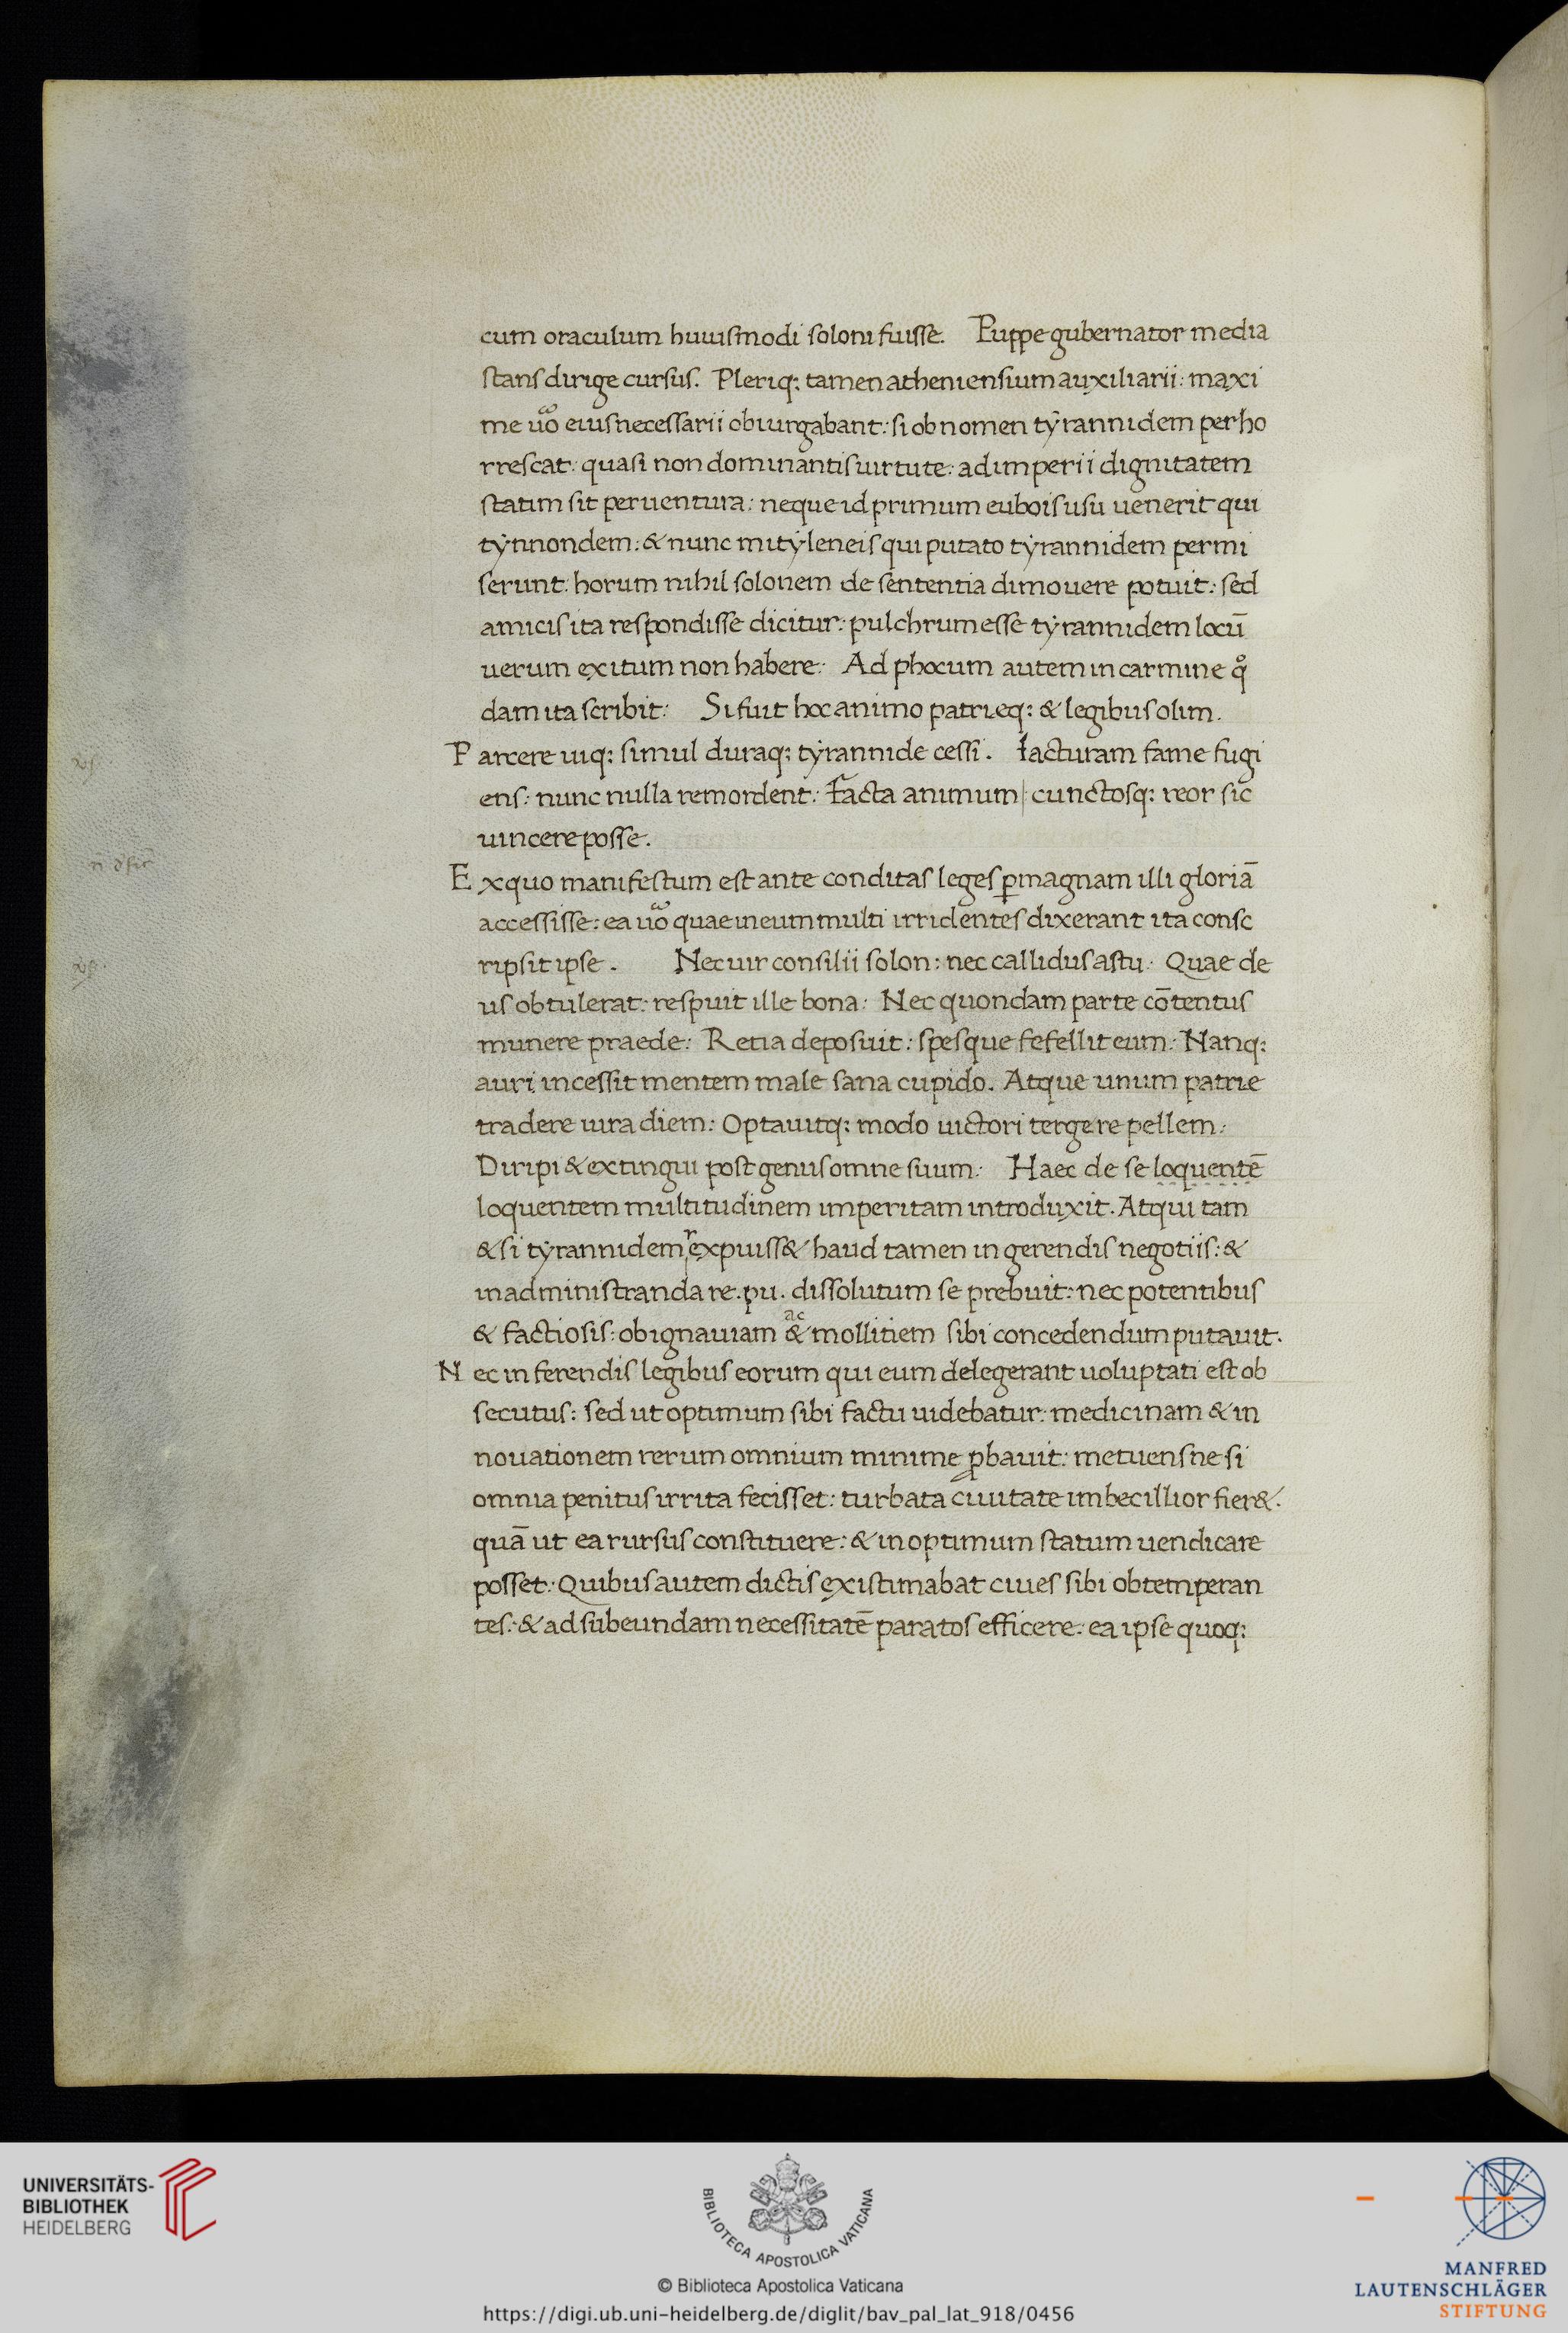 cum oraculum huiusmodi soloni fuisse. Puppe gubernator media
stans dirige cursus. Pleriq; tamen atheniensium auxiliarii: maxi
me uo eius necessarii obiurgabant: si ob nomen tyrannidem perho
rrescat: quasi non dominantis uirtute: ad imperii dignitatem
statim sit peruentura: neque id primum eubois usu uenerit qui
tynnondem: & nunc mityleneis qui putato tyrannidem permi
serunt: horum nihil solonem de sententia dimouere potuit: sed
amicis ita respondisse dicitur: pulchrum esse tyrannidem locū
uerum exitum non habere: Ad phocum autem in carmine qͦ
dam ita scribit: Si fuit hoc animo patrieq; & legibus olim.
Parcere uiq; simul duraq; tyrannide cessi. Iacturam fame fugi
ens: nunc nulla remordent: Facta animum | cunctosq; reor sic
uincere posse.
Ex quo manifestum est ante conditas leges ꝑmagnam illi gloriā
accessisse: ea uo quae in eum multi irridentes dixerant ita consc
ripsit ipse. Nec uir consilii solon: nec callidus astu: Quae de
us obtulerat: respuit ille bona: Nec quondam parte cōtentus
munere praede: Retia deposuit: spesque fefellit eum: Nanq;
auri incessit mentem male sana cupido. Atque unum patrie
tradere iura diem: Optauitq; modo uictori tergere pellem:
Diripi & extingui post genus omne suum: Haec de se loquentē
loquentem multitudinem imperitam introduxit. Atqui tam
& si tyrannidem rexpuiss& haud tamen in gerendis negotiis: &
in administranda re. pu. dissolutum se prebuit: nec potentibus
& factiosis: ob ignauiam & ac mollitiem sibi concedendum putauit.
Nec in ferendis legibus eorum qui eum delegerant uoluptati est ob
secutus: sed ut optimum sibi factu uidebatur: medicinam & in
nouationem rerum omnium minime ꝓbauit: metuens ne si
omnia penitus irrita fecisset: turbata ciuitate imbecillior fier&.
quā ut ea rursus constituere: & in optimum statum uendicare
posset: Quibus autem dictis existimabat ciues sibi obtemperan
tes: & ad subeundam necessitatē paratos efficere: ea ipse quoq;
UNIVERSITÄTS-
BIBLIOTHEK
HEIDELBERG
BIBLIOTECA APOSTOLICA VATICANA
© Biblioteca Apostolica Vaticana
https://digi.ub.uni-heidelberg.de/diglit/bav_pal_lat_918/0456
MANFRED
LAUTENSCHLÄGER
STIFTUNG